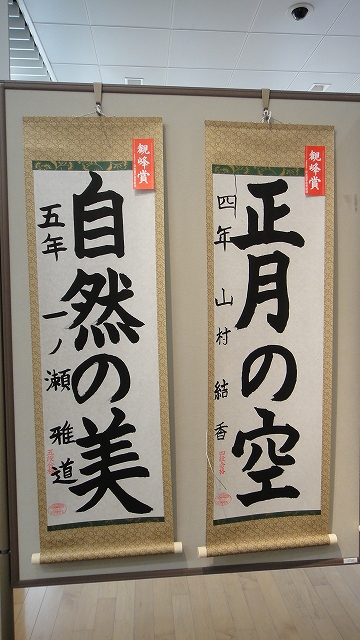 観峰賞
正月の空
四年 山村 結香
観峰賞
自然の美
五年 一ノ瀬 雅道